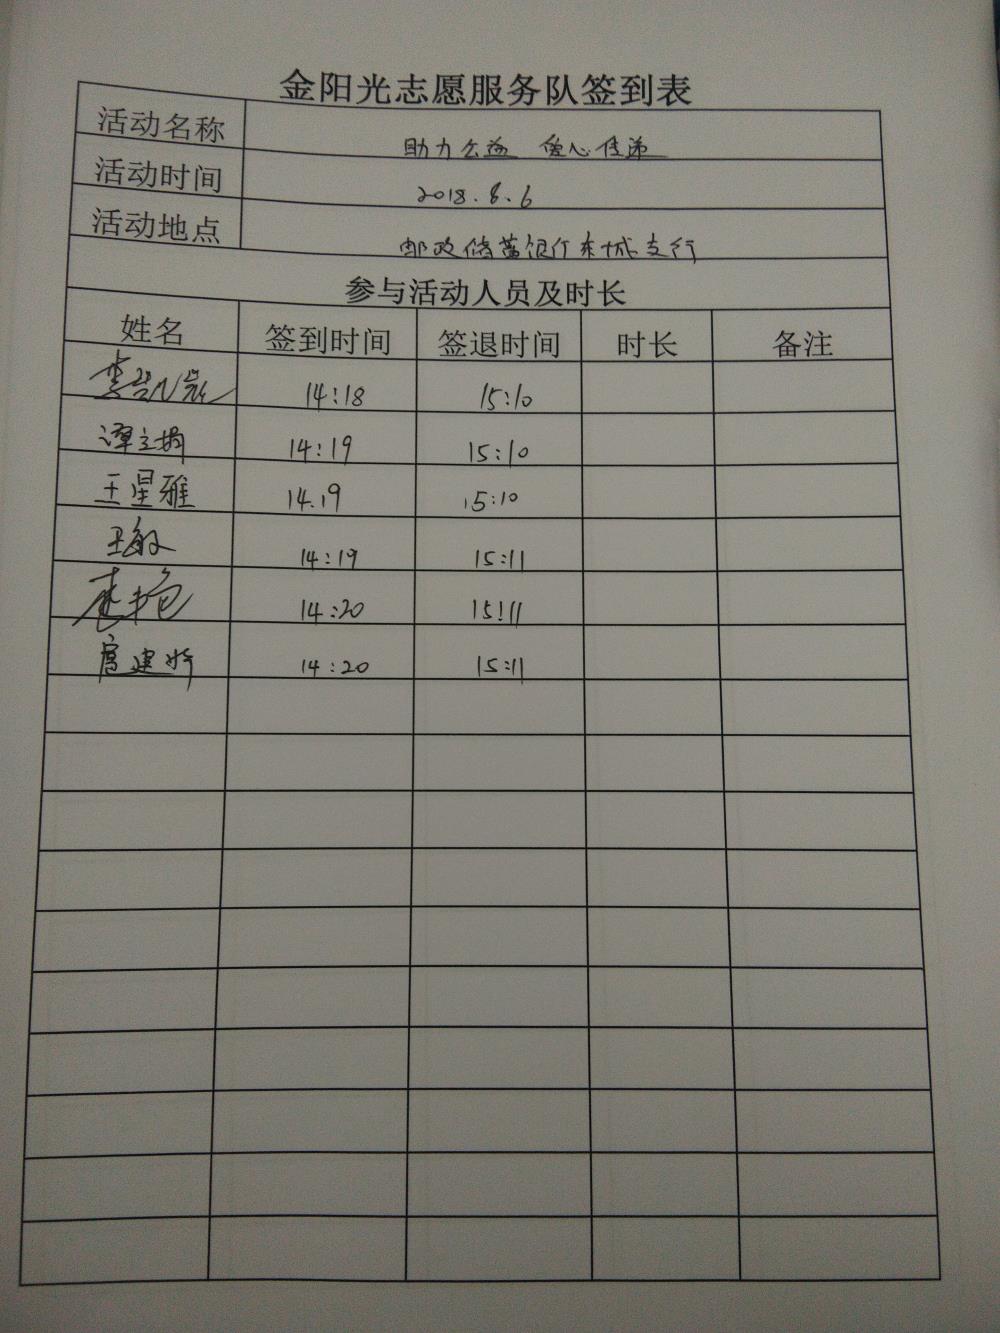 金阳光志愿服务队签到表
活动名称 助力公益 爱心传递
活动时间 2018.8.6
活动地点 邮政储蓄银行东城支行
参与活动人员及时长
姓名 签到时间 签退时间 时长 备注
14:18 15:10
14:19 15:10
王星雅 14.19 15:10
王敏 14:19 15:11
14:20 15:11
14:20 15:11